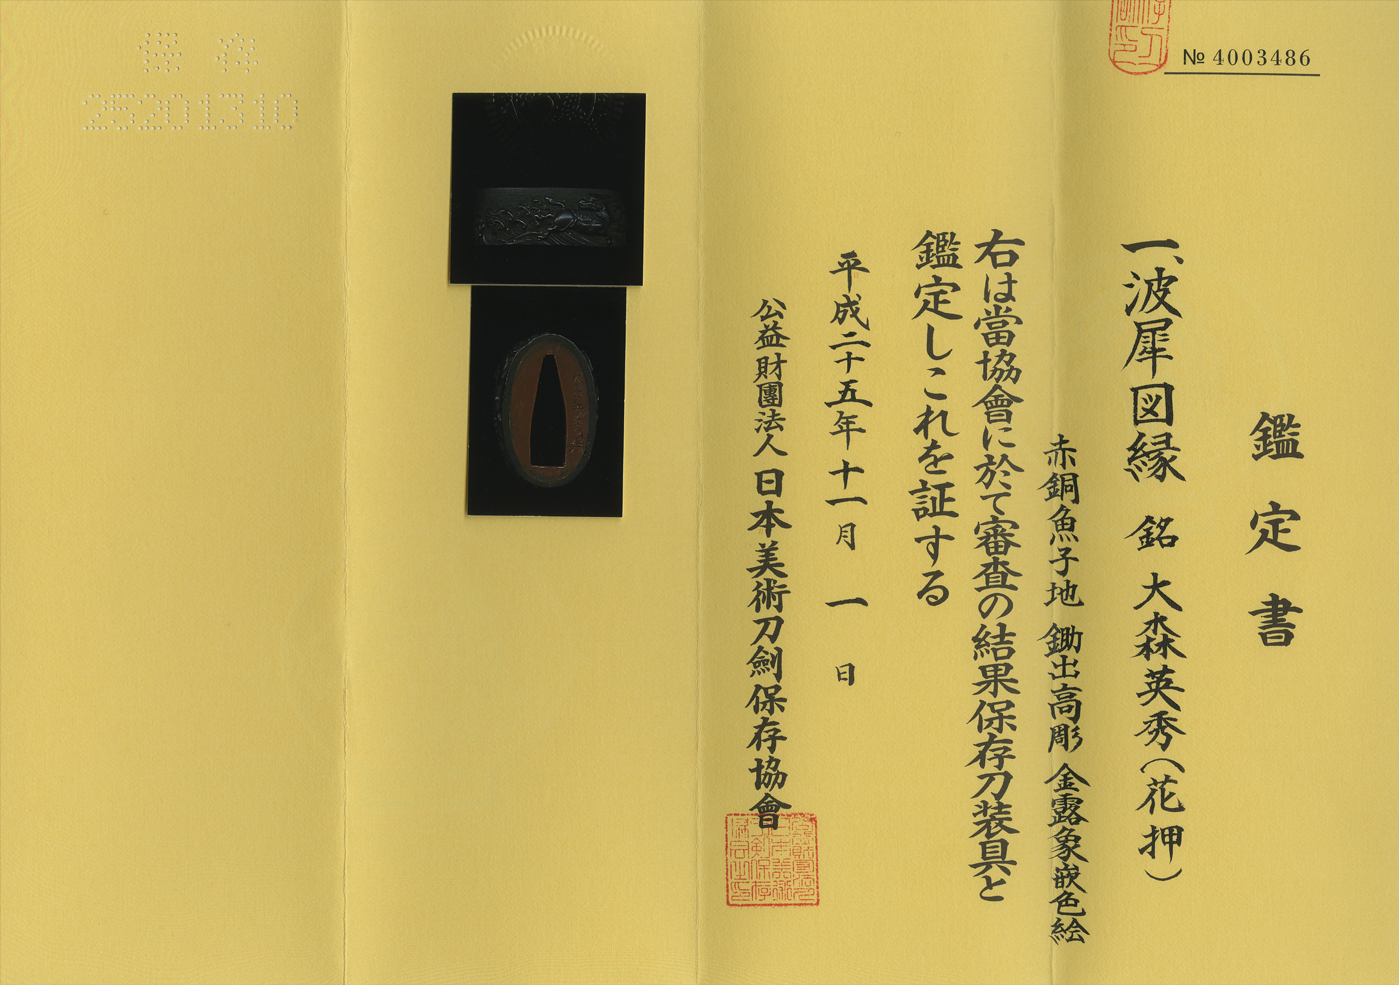 № 4003486
鑑定書
一、波犀図縁 銘 大森英秀(花押)
赤銅魚子地 鋤出高彫 金露象嵌色絵
右は當協會に於て審査の結果保存刀装具と
鑑定しこれを証する
平成二十五年十一月 一 日
公益財團法人 日本美術刀劍保存協會
保存
25201310